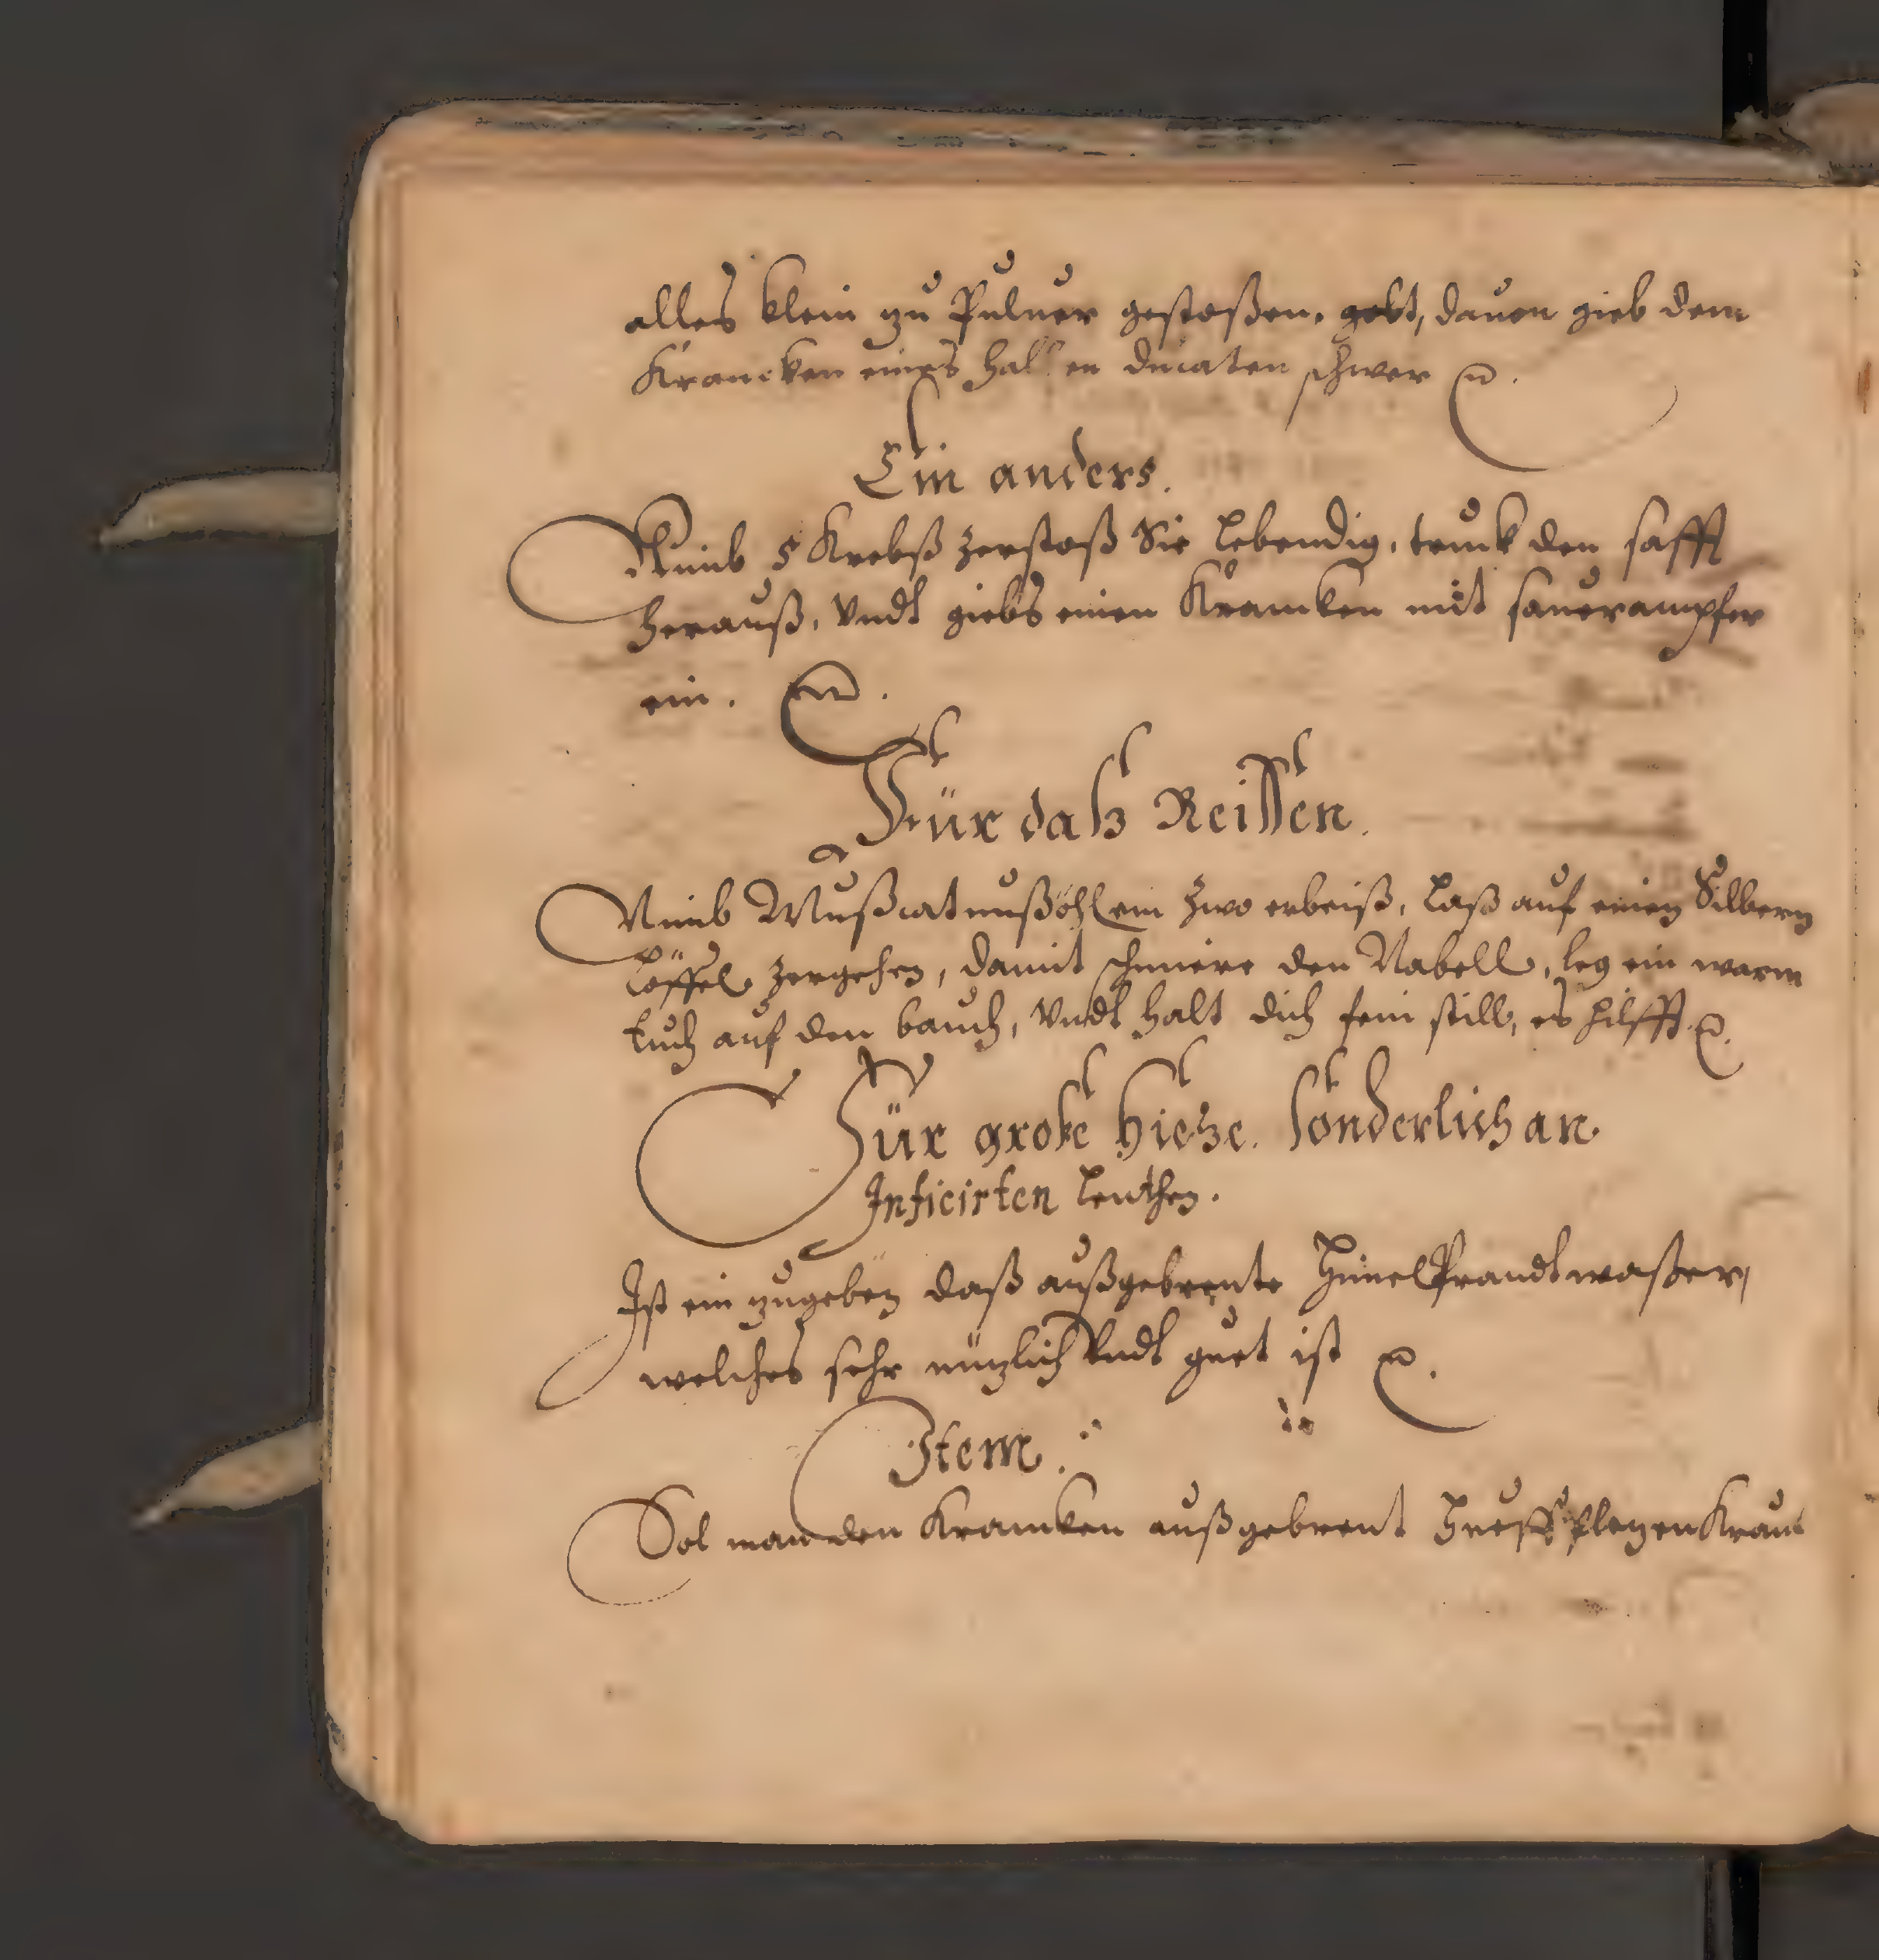 alles klein zu Puluer gestoßen, gebt, dauon gieb dem
Krancken eines halben ducaten schwer ꝛc.
Ein anders.
Nimb 5 Krebß zerstoß Sie Lebendig, truck den safft
herauß, Vndt giebs einen Krancken mit sauerampfer
ein. ꝛc.
Für daß Reissen.
Nimb Mußcatnußöhl ein zwo erbeiß, Laß auf einen Silbern
Löffel zergehen, damit schmiere den Nabell, leg ein warm
tuch auf den bauch, Vndt halt dich fein still, es hilfft ꝛc.
Für große hietze. sonderlich an
Inficirten Leuthen.
Ist ein zugeben daß außgebrente HimelPrandtwaßer,
welches sehr nüzlich Vndt guet ist ꝛc.
Item.
Sol man den Krancken außgebrent Kraut